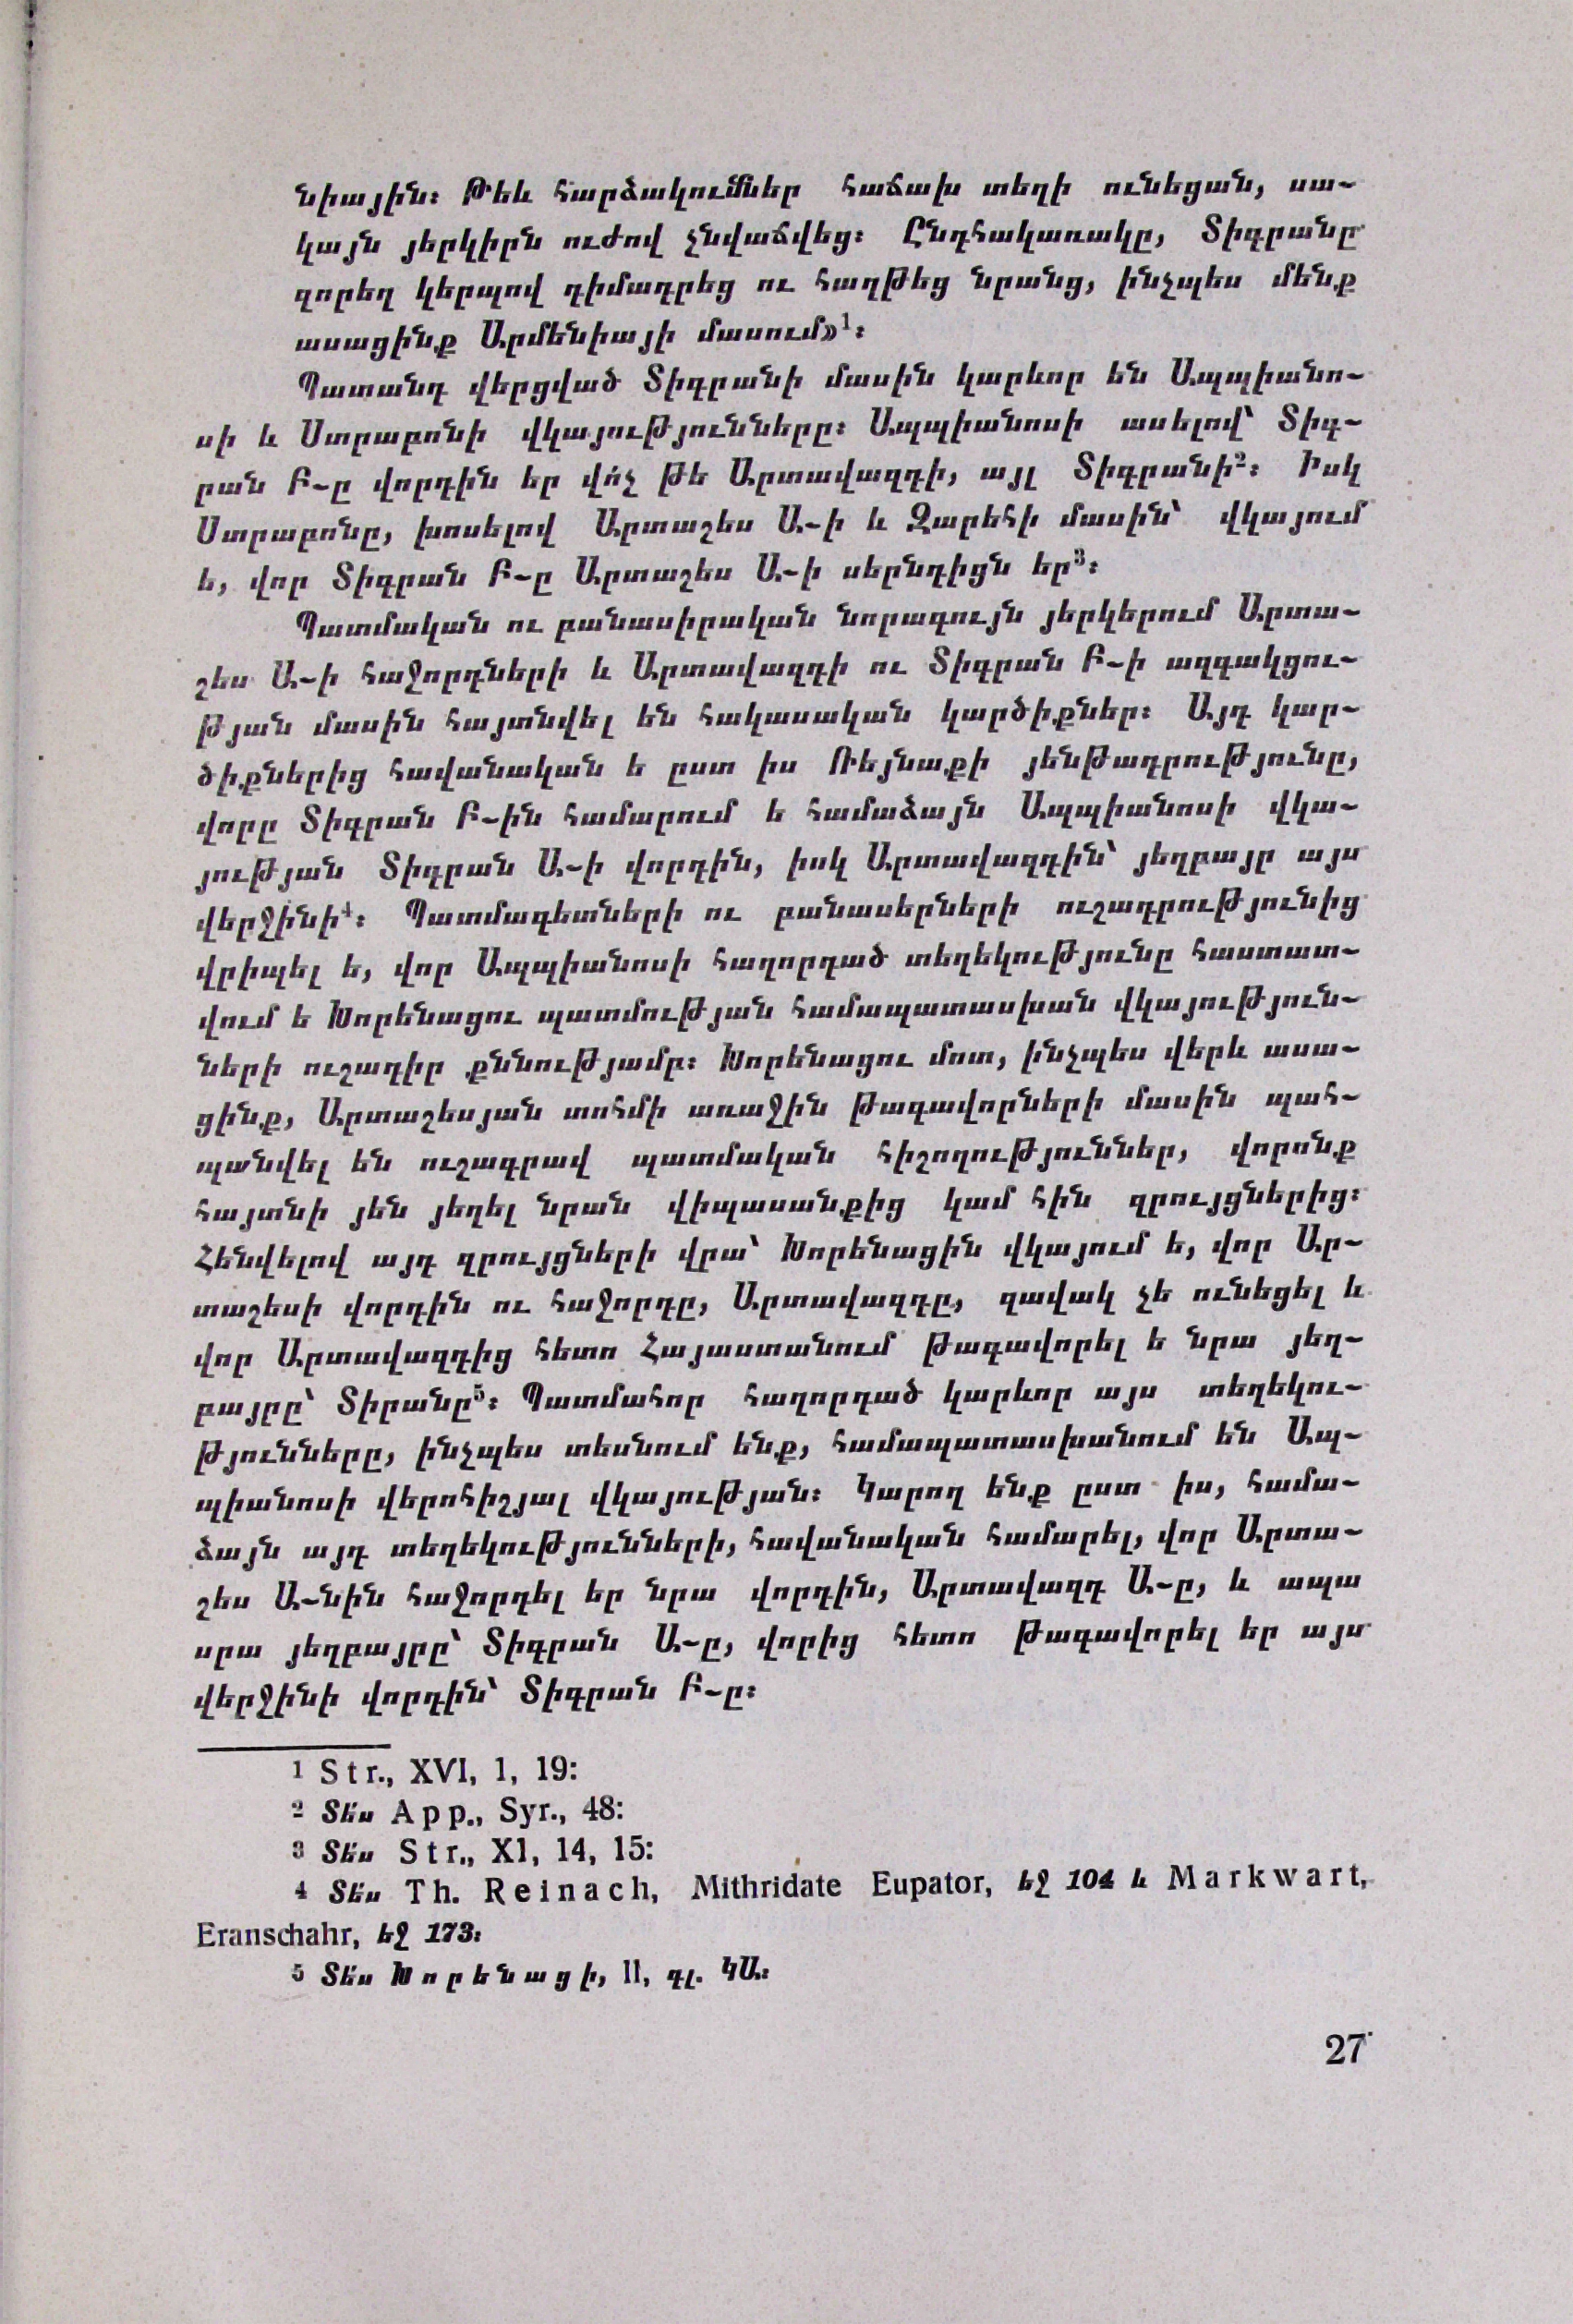 նիային։ Թեև հարձակումներ հաճախ տեղի ունեցան, սա-
կայն յերկիրն ուժով չնվաճվեց։ Ընդհակառակը, Տիգրանը
զորեղ կերպով դիմադրեց ու հաղթեց նրանց, ինչպես մենք
ասացինք Արմենիայի մասում»¹։
Պատանդ վերցված Տիգրանի մասին կարևոր են Ապպիանո-
սի և Ստրաբոնի վկայությունները։ Ապպիանոսի ասելով՝ Տիգ-
րան Բ-ը վորդին եր վո՛չ թե Արտավազդի, այլ Տիգրանի²։ Իսկ
Ստրաբոնը, խոսելով Արտաշես Ա-ի և Զարեհի մասին՝ վկայում
ե, վոր Տիգրան Բ-ը Արտաշես Ա-ի սերնդիցն եր³։
Պատմական ու բանասիրական նորագույն յերկերում Արտա-
շես Ա-ի հաջորդների և Արտավազդի ու Տիգրան Բ-ի ազգակցու-
թյան մասին հայտնվել են հակասական կարծիքներ։ Այդ կար-
ծիքներից հավանական ե ըստ իս Ռեյնաքի յենթադրությունը,
վորը Տիգրան Բ-ին համարում ե համաձայն Ապպիանոսի վկա-
յության Տիգրան Ա-ի վորդին, իսկ Արտավազդին՝ յեղբայր այս
վերջինի⁴։ Պատմագետների ու բանասերների ուշադրությունից
վրիպել ե, վոր Ապպիանոսի հաղորդած տեղեկությունը հաստատ-
վում ե Խորենացու պատմության համապատասխան վկայություն-
ների ուշադիր քննությամբ։ Խորենացու մոտ, ինչպես վերև ասա-
ցինք, Արտաշեսյան տոհմի առաջին թագավորների մասին պահ-
պանվել են ուշագրավ պատմական հիշողություններ, վորոնք
հայտնի յեն յեղել նրան վիպասանքից կամ հին զրույցներից։
Հենվելով այդ զրույցների վրա՝ Խորենացին վկայում ե, վոր Ար-
տաշեսի վորդին ու հաջորդը, Արտավազդը, զավակ չե ունեցել և
վոր Արտավազդից հետո Հայաստանում թագավորել ե նրա յեղ-
բայրը՝ Տիրանը⁵։ Պատմահոր հաղորդած կարևոր այս տեղեկու-
թյունները, ինչպես տեսնում ենք, համապատասխանում են Ապ-
պիանոսի վերոհիշյալ վկայության։ Կարող ենք ըստ իս, համա-
ձայն այդ տեղեկությունների, հավանական համարել, վոր Արտա-
շես Ա-նին հաջորդել եր նրա վորդին, Արտավազդ Ա-ը, և ապա
սրա յեղբայրը՝ Տիգրան Ա-ը, վորից հետո թագավորել եր այս
վերջինի վորդին՝ Տիգրան Բ-ը։
1 Str., XVI, 1, 19։
2 Տե՛ս App., Syr., 48։
3 Տե՛ս Str., XI, 14, 15։
4 Տե՛ս Th. Reinach, Mithridate Eupator, եջ 104 և Markwart,
Eranschahr, եջ 173։
5 Տե՛ս Խորենացի, II, գլ. ԿԱ։
27